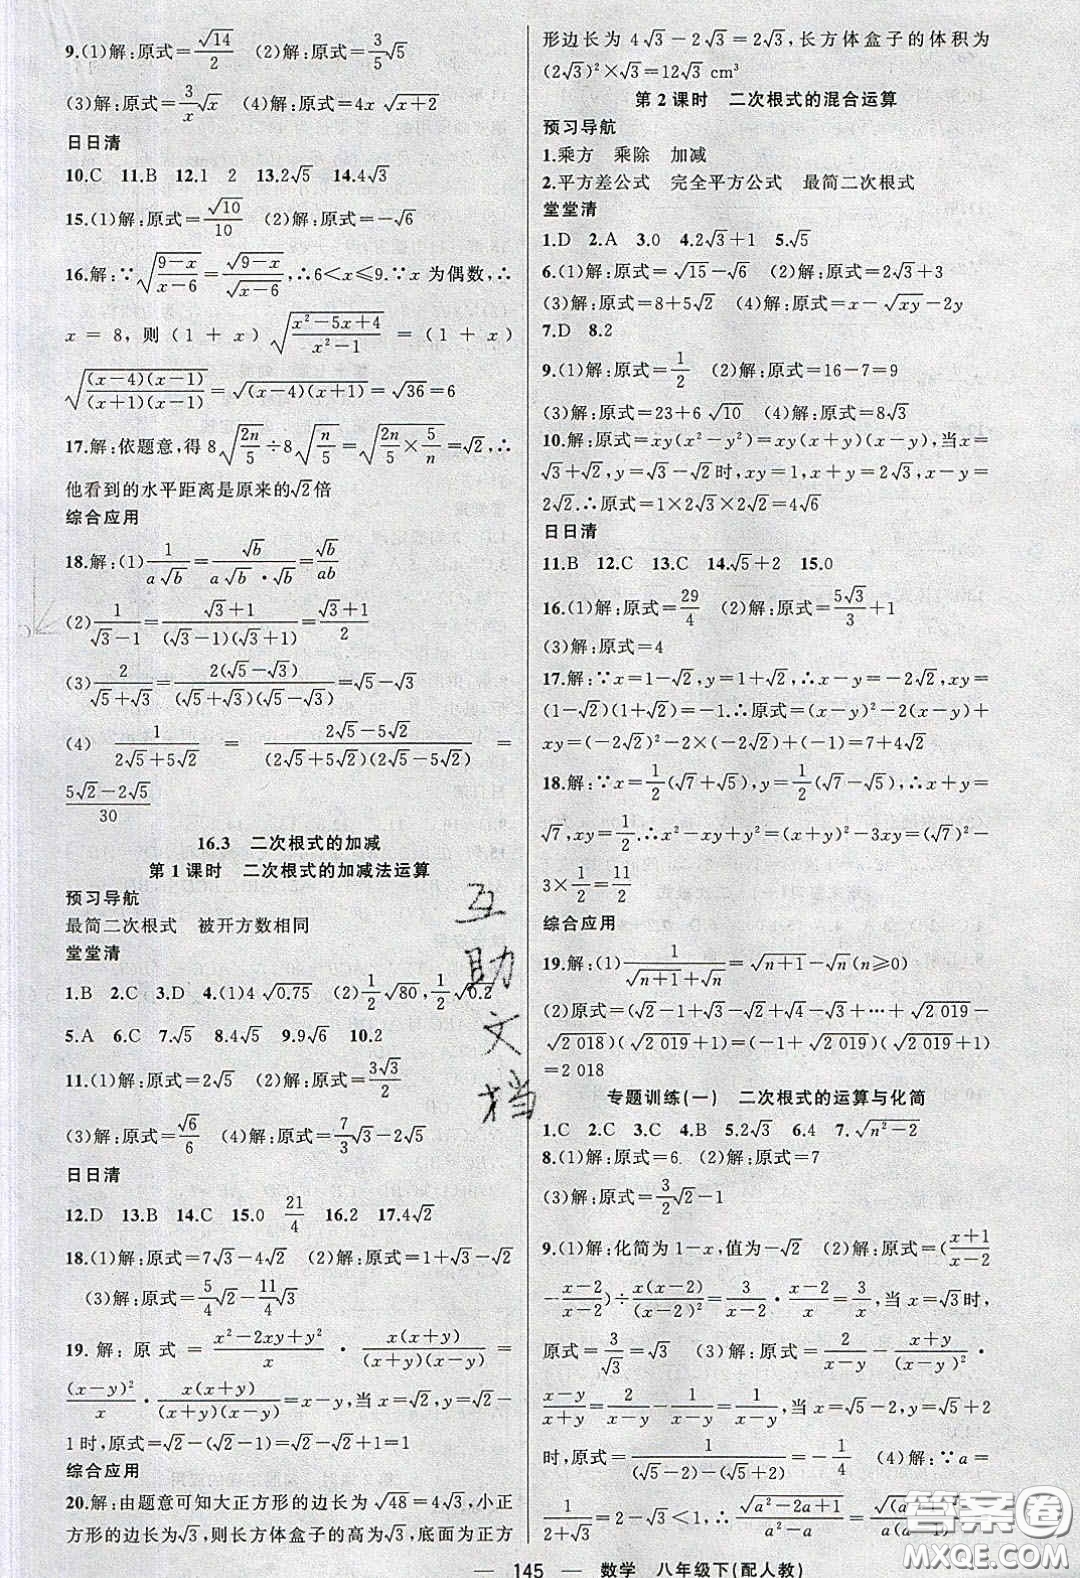 9.(1)解:原式=√14/2 (2)解:原式=3/5√5
(3)解:原式=3/x√x (4)解:原式=4x√(x+2)
日日清
10.C 11.B 12.1 2 13.2√5 14.4√3
15.(1)解:原式=√10/10 (2)解:原式=-√6
16.解:∵√((9-x)/(x-6))=√(9-x)/√(x-6),∴6<x≤9.∵x为偶数,∴
x=8,则(1+x)√((x²-5x+4)/(x²-1))=(1+x)
√((x-4)(x-1)/((x+1)(x-1)))=√((x-4)(x+1))=√36=6
17.解:依题意,得8√(2n/5)÷8√(n/5)=√(2n/5×5/n)=√2,∴
他看到的水平距离是原来的√2倍
综合应用
18.解:(1)1/(a√b)=√b/(a√b·√b)=√b/(ab)
(2)1/(√3-1)=(√3+1)/((√3-1)(√3+1))=(√3+1)/2
(3)2/(√5+√3)=2(√5-√3)/((√5+√3)(√5-√3))=√5-√3
(4)1/(2√5+5√2)=(2√5-5√2)/((2√5+5√2)(2√5-5√2))=
(5√2-2√5)/30
16.3 二次根式的加减
第1课时 二次根式的加减法运算
预习导航
最简二次根式 被开方数相同
堂堂清
1.B 2.C 3.D 4.(1)4√0.75 (2)1/2√80,1/2√0.2
5.A 6.C 7.√5 8.4√5 9.9√6 10.2
11.(1)解:原式=2√5 (2)解:原式=3√3/2
(3)解:原式=√6/6 (4)解:原式=7/3√3-2√5
日日清
12.D 13.B 14.C 15.0 21/4 16.2 17.4√2
18.(1)解:原式=7√3-4√2 (2)解:原式=1+√3-√2
(3)解:原式=5/4√2-11/4√3
19.解:原式=(x²-2xy+y²)/x·x(x+y)/((x+y)(x-y))=
(x-y)²/x·x(x+y)/((x+y)(x-y))=x-y,当x=√2,y=√2-
1时,原式=√2-(√2-1)=√2-√2+1=1
综合应用
20.解:由题意可知大正方形的边长为√48=4√3,小正
方形的边长为√3,则长方体盒子的高为√3,底面为正方
形边长为4√3-2√3=2√3,长方体盒子的体积为
(2√3)²×√3=12√3 cm³
第2课时 二次根式的混合运算
预习导航
1.乘方 乘除 加减
2.平方差公式 完全平方公式 最简二次根式
堂堂清
1.D 2.A 3.0 4.2√3+1 5.√5
6.(1)解:原式=√15-√6 (2)解:原式=2√3+3
(3)解:原式=8+5√2 (4)解:原式=x-√xy-2y
7.D 8.2
9.(1)解:原式=1/2 (2)解:原式=16-7=9
(3)解:原式=23+6√10 (4)解:原式=8√3
10.解:原式=xy(x²-y²)=xy(x+y)(x-y),当x=
√3+√2,y=√3-√2时,xy=1,x+y=2√3,x-y=
2√2.∴原式=1×2√3×2√2=4√6
日日清
11.B 12.C 13.C 14.√5+2 15.0
16.(1)解:原式=29/4 (2)解:原式=5√3/3+1
(3)解:原式=4
17.解:∵x=1-√2,y=1+√2,∴x-y=-2√2,xy=
(1-√2)(1+√2)=-1.∴原式=(x-y)²-2(x-y)+
xy=(-2√2)²-2×(-2√2)+(-1)=7+4√2
18.解:∵x=1/2(√7+√5),y=1/2(√7-√5),∴x+y=
√7,xy=1/2.∴x²-xy+y²=(x+y)²-3xy=(√7)²-
3×1/2=11/2
综合应用
19.解:(1)1/(√(n+1)+√n)=√(n+1)-√n(n≥0)
(2)原式=(√2-1+√3-√2+√4-√3+…+√2 019-
√2 018)(√2 019+1)=(√2 019-1)(√2 019+1)
=2 018
专题训练(一) 二次根式的运算与化简
1.C 2.C 3.C 4.B 5.2√3 6.4 7.√(n²-2)
8.(1)解:原式=6. (2)解:原式=7
(3)解:原式=3/2√2-1
9.(1)解:化简为1-x,值为-√2 (2)解:原式=((x+1)/(x-2)
-(x-2)/(x-2))÷x(x-2)/(x-2)²=3/(x-2)·(x-2)/x=3/x,当x=√3时,
原式=3/√3=√3 (3)解:原式=2/(x-y)-(x+y)/(x-y)²·
(x-y)/(x+y)=2/(x-y)-1/(x-y)=1/(x-y),当x=√5-2,y=√5+2
时,原式=1/((√5-2)-(√5+2))=-1/4 (4)解:∵a=
1/(2+√3)=2-√3<1,∴√(a²-2a+1)/(a²-a)=
145 — 数学 八年级下(配人教)
互助文档
答案圈
MXQE.COM